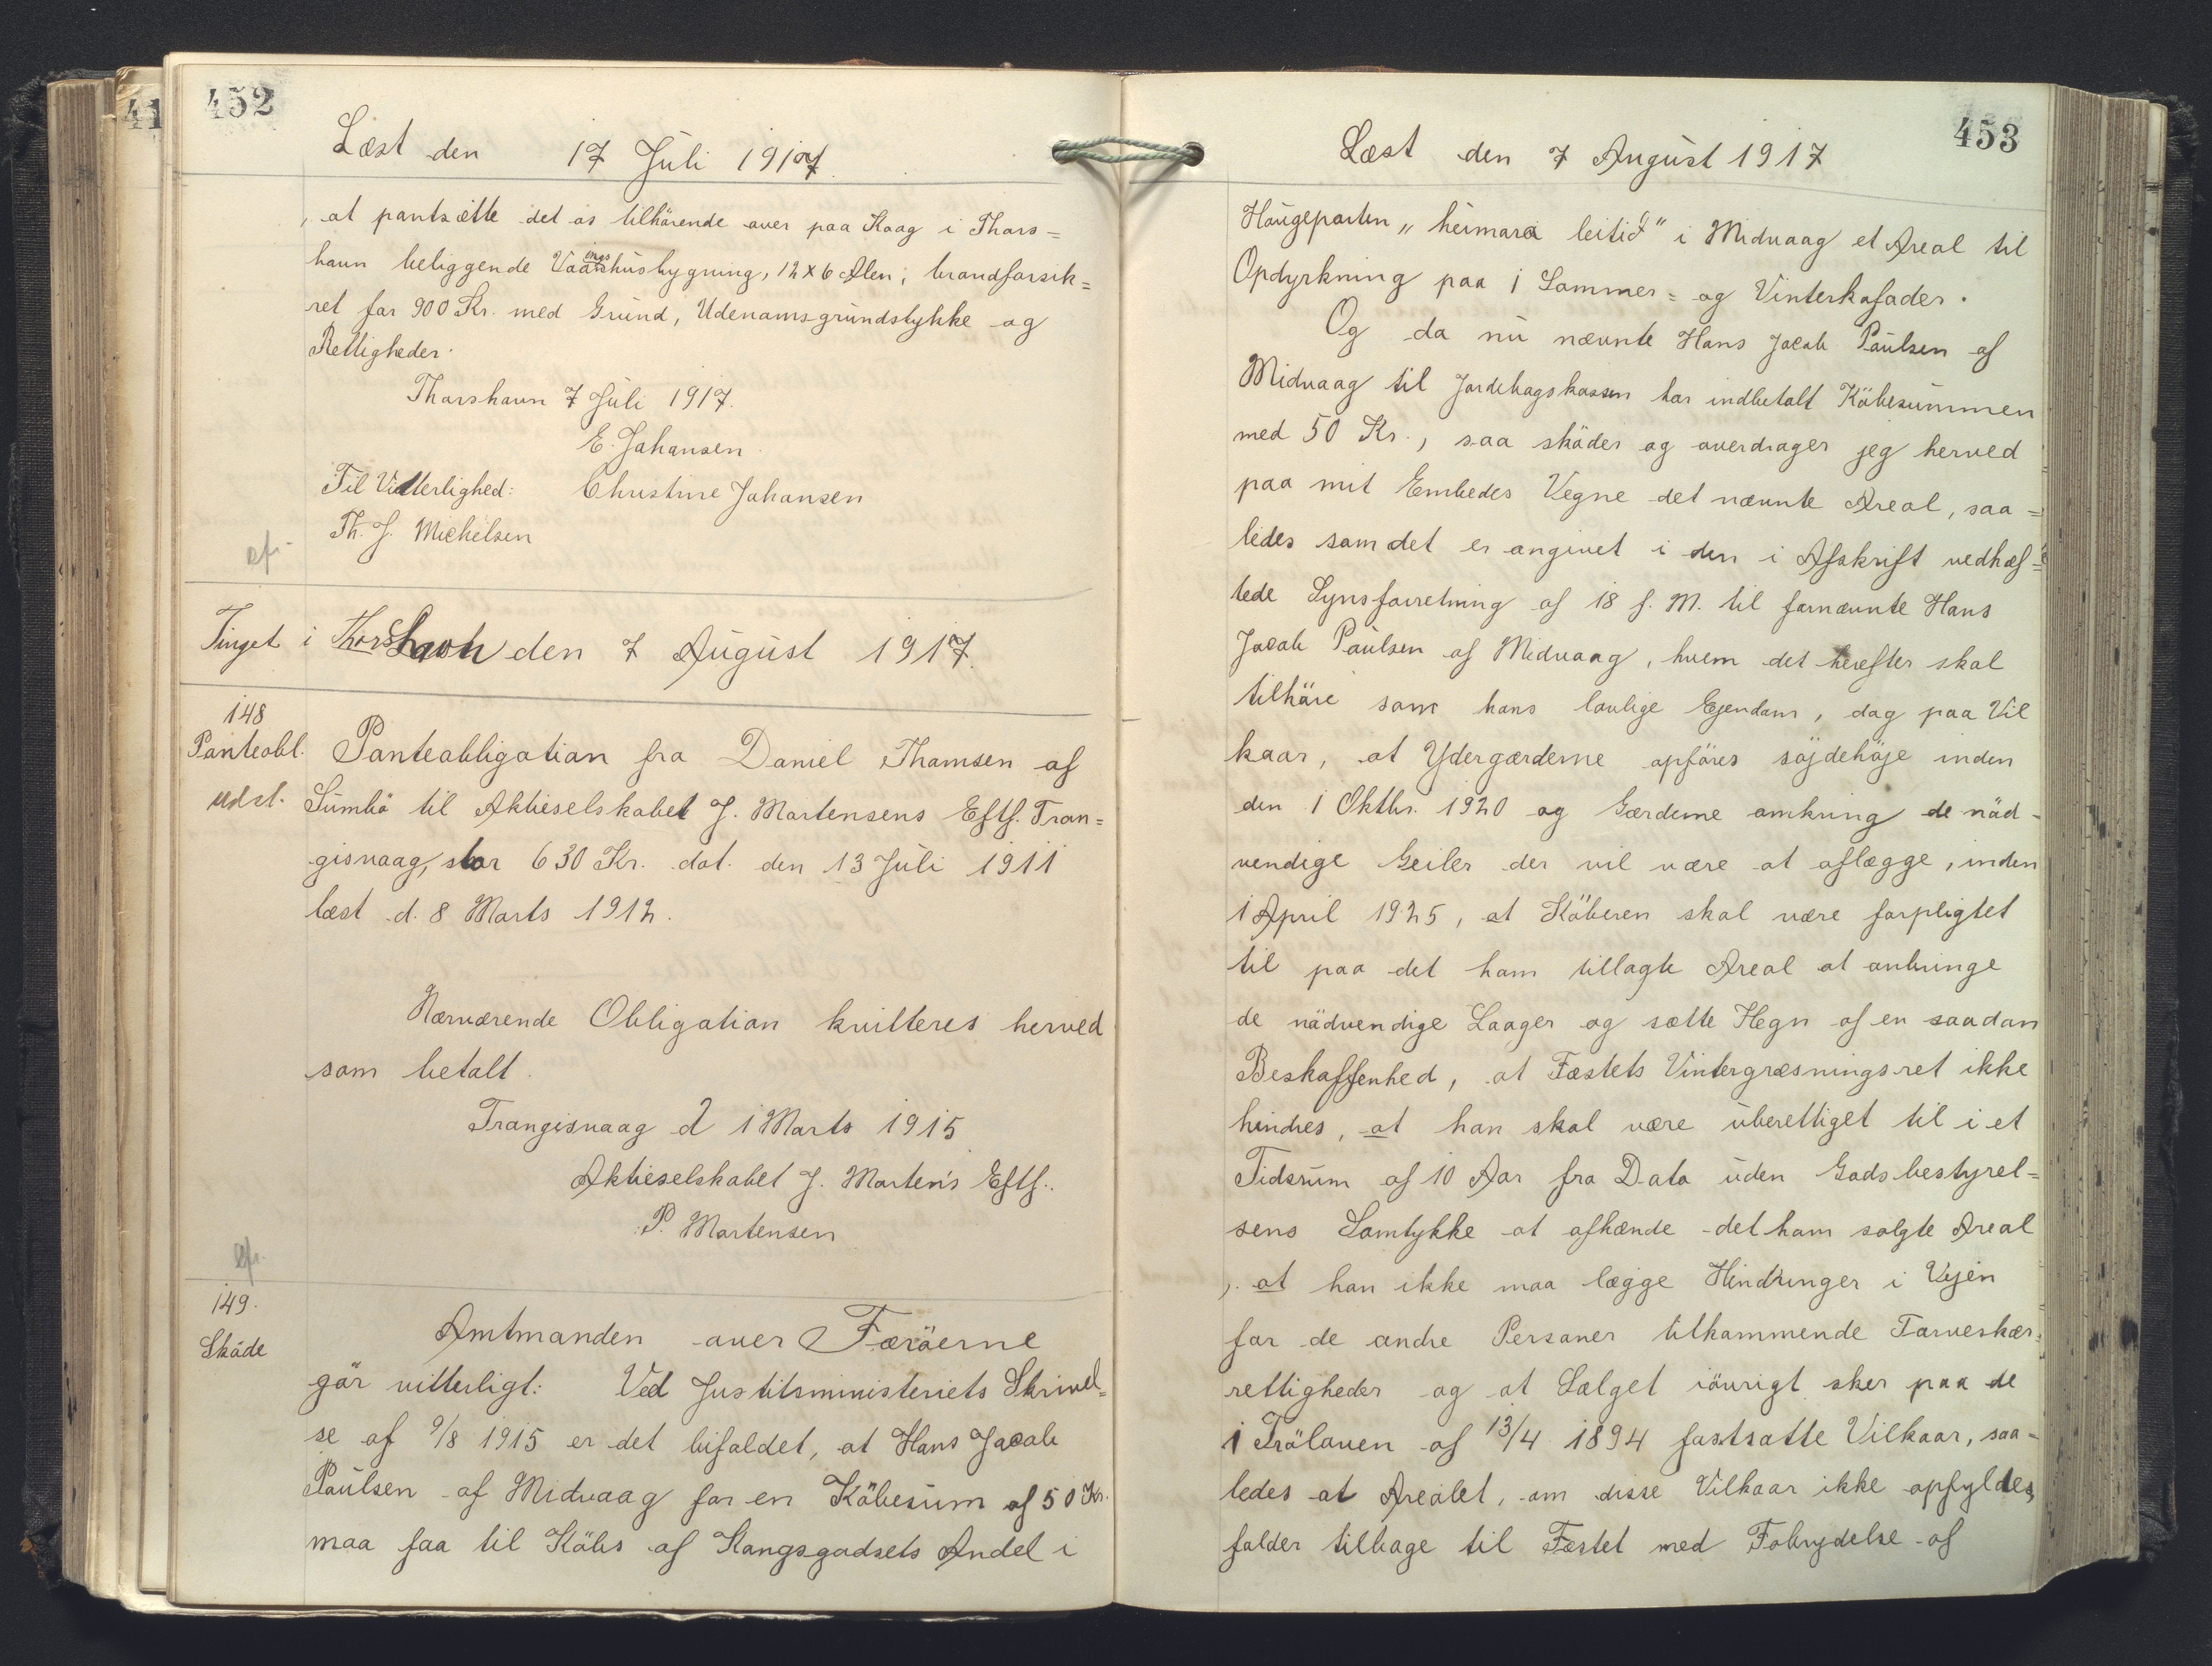 452
Læst den 17 Juli 1917.
, at pantsætte det os tilhörende over paa Kaag i Thors=
havn beliggende Vaaningshusbygning, 12 x 6 Alen, brandforsik=
ret for 900 Kr. med Grund, Udenomsgrundstykke og
Rettigheder.
Thorshavn 7 Juli 1917.
E. Johansen
Til Vitterlighed: Christine Johansen
Th. J. Michelsen
cfr.
Tinget i Thorshavn den 7 August 1917.
148
Panteobl.
udsl.
Panteobligation fra Daniel Thomsen af
Sumbö til Aktieselskabet J. Mortensens Eftf. Tran=
gisvaag, stor 630 Kr. dat. den 13 Juli 1911
læst d. 8 Marts 1912.
Nærværende Obligation kvitteres herved
som betalt.
Trangisvaag d 1 Marts 1915
Aktieselskabet J. Morten's Eftf..
P. Mortensen
cfr.
149.
Sköde
Amtmanden over Færöerne
gör vitterligt: Ved Justitsministeriets Skrivel=
se af 9/8 1915 er det bifaldet, at Hans Jacob
Paulsen af Midvaag for en Köbesum af 50 Kr.
maa faa til Köbs af Kongsgodsets Andel i
41
453
Læst den 7 August 1917
Haugeparten „heimara leitið" i Midvaag et Areal til
Opdyrkning paa 1 Sommer= og Vinterkofoder.
Og da nu nævnte Hans Jacob Paulsen af
Midvaag til Jordebogskassen har indbetalt Köbesummen
med 50 Kr., saa sköder og overdrager jeg herved
paa mit Embedes Vegne det nævnte Areal, saa=
ledes som det er angivet i den i Afskrift vedhæf=
tede Synsforretning af 18 f. M. til fornævnte Hans
Jacob Paulsen af Midvaag, hvem det herefter skal
tilhöre som hans lovlige Ejendom, dog paa Vil
kaar, at Ydergærderne opföres söjdehöje inden
den 1 Oktbr. 1920 og Gærderne omkring de nöd-
vendige Geiler der vil være at aflægge, inden
1 April 1925, at Köberen skal være forpligtet
til paa det ham tillagte Areal at anbringe
de nödvendige Laager og sætte Hegn af en saadan
Beskaffenhed, at Fæstets Vintergræsningsret ikke
hindres, at han skal være uberettiget til i et
Tidsrum af 10 Aar fra Dato uden Godsbestyrel=
sens Samtykke at afhænde det ham solgte Areal
, at han ikke maa lægge Hindringer i Vejen
for de andre Personer tilkommende Törveskær=
rettigheder og at Salget iövrigt sker paa de
i Fröloven af 13/4 1894 fastsatte Vilkaar, saa-
ledes at Arealet, om disse Vilkaar ikke opfyldes,
falder tilbage til Fæstet med Fobrydelse af